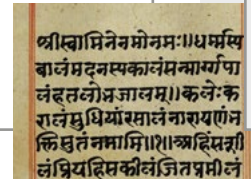 श्रीस्वामिनेनमोनमः॥धर्म्मस्य
बालंमदनस्यकालंसन्मार्ग्गपा
लंहतलोभजालम्॥कलेःक
रालंसुधियांरसालंनारायणंभ
क्तिसुतंनमामि॥१॥अहिंसनशी
लंप्रियहिंसकीलंजितप्रमीलं